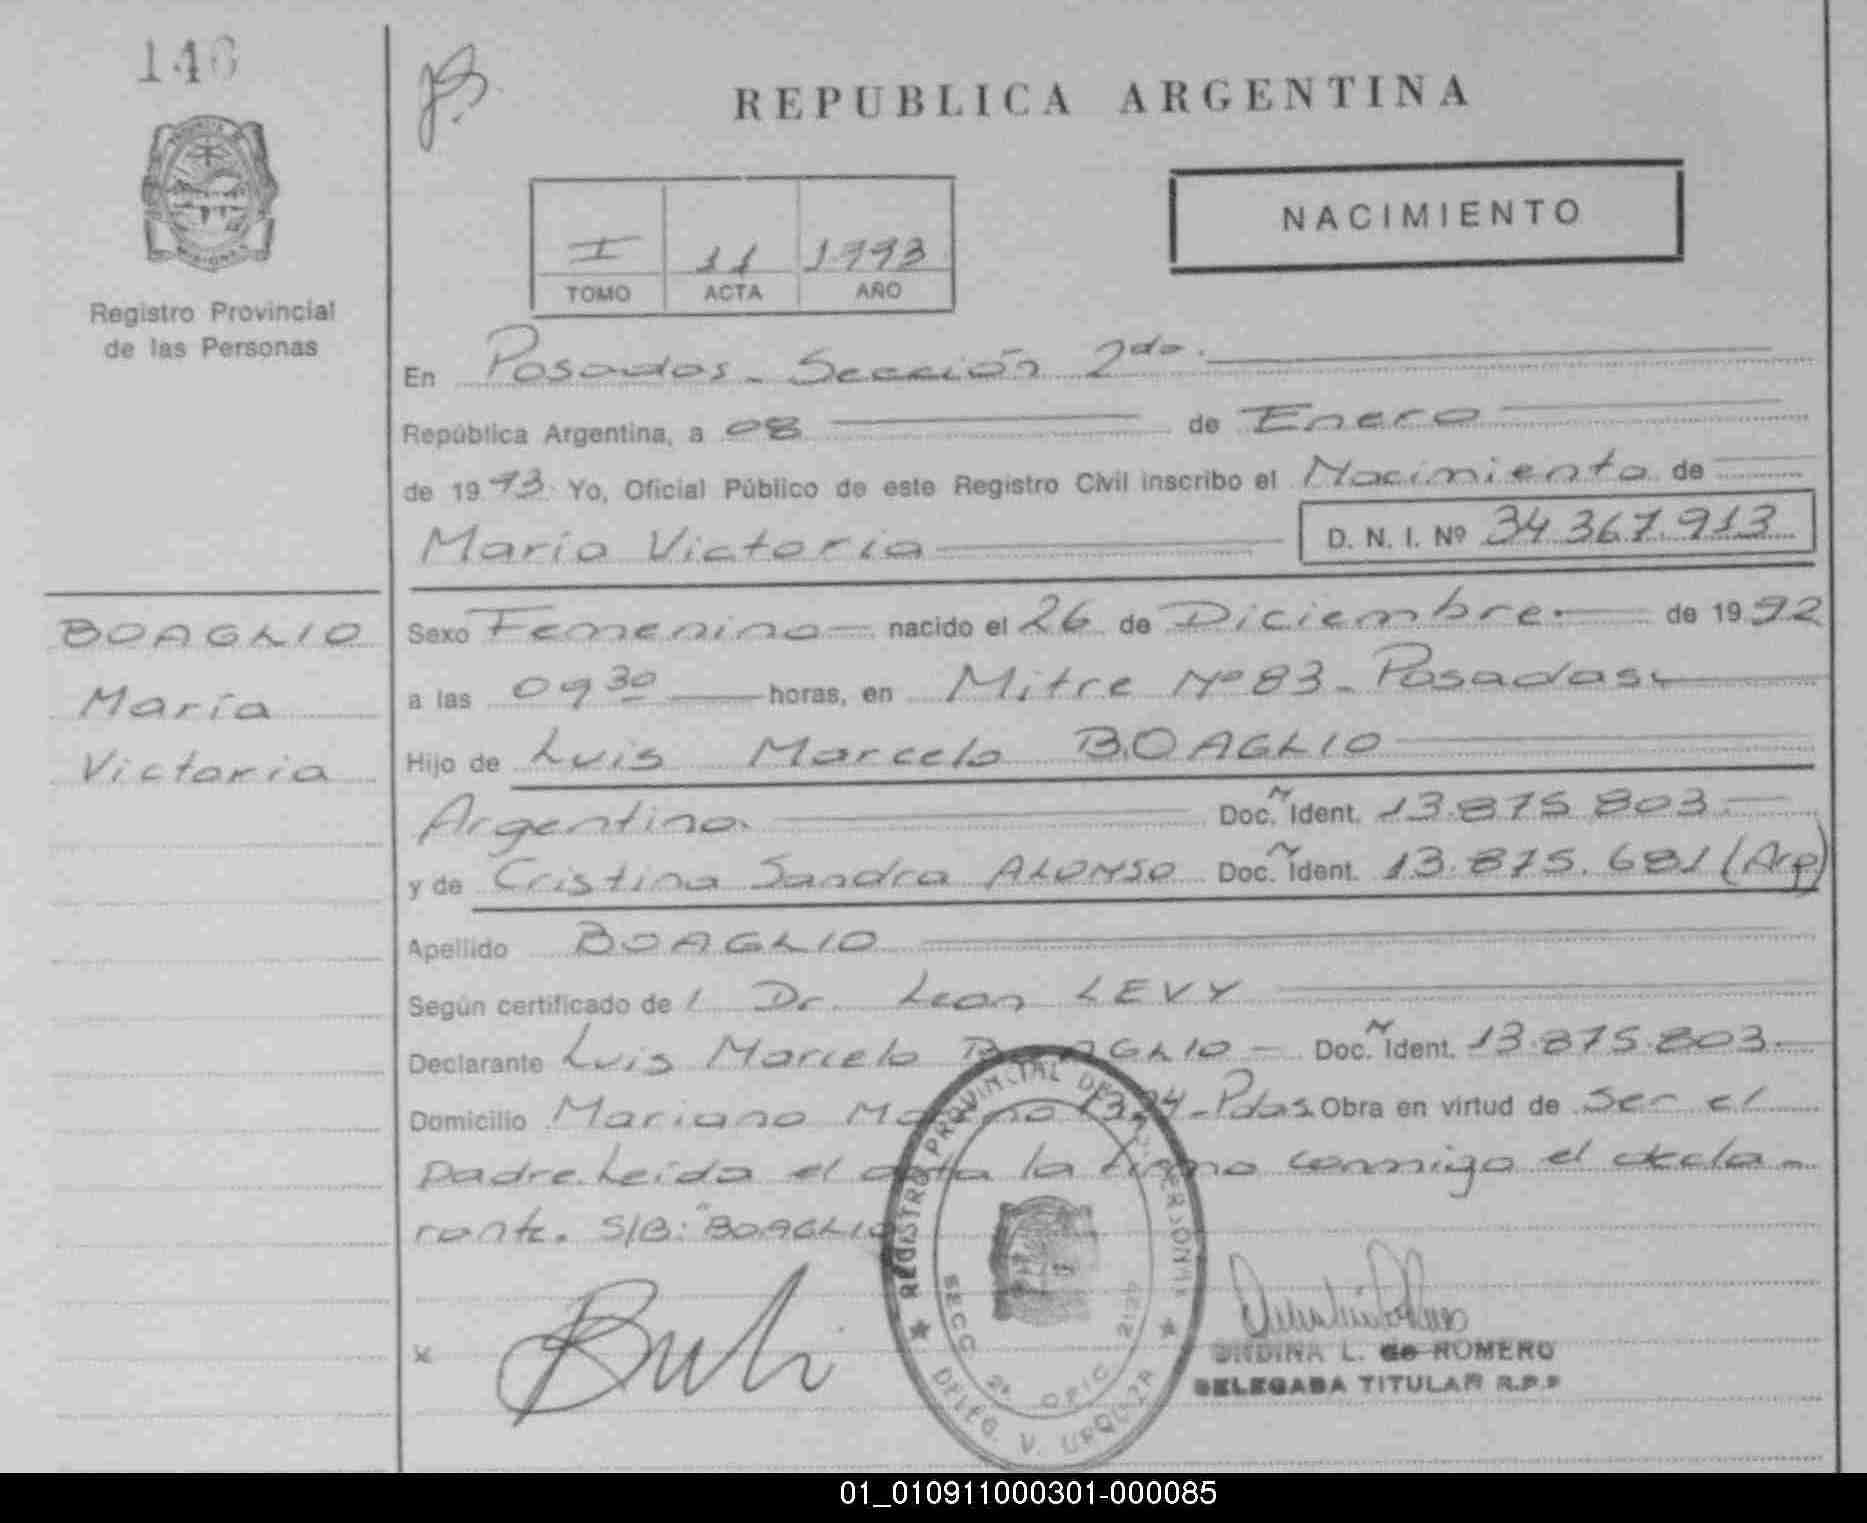 146
REPUBLICA ARGENTINA
NACIMIENTO
I 11 1993
TOMO ACTA AÑO
Registro Provincial
de las Personas
En Posadas - Sección 2da.
República Argentina, a 08 de Enero
de 1993 Yo, Oficial Público de este Registro Civil inscribo el Nacimiento de
María Victoria D. N. I. Nº 34.367.913
BOAGLIO
María
Victoria
Sexo Femenino nacido el 26 de Diciembre. de 1992
a las 09 30 horas, en Mitre Nº 83 - Posadas.
Hijo de Luis Marcelo BOAGLIO
Argentino. Doc. Ident. 13.875.803
y de Cristina Sandra ALONSO Doc. Ident. 13.875.681 (Arg)
Apellido BOAGLIO
Según certificado de l Dr. Leon LEVY
Declarante Luis Marcelo BOAGLIO Doc. Ident. 13.875.803.
Domicilio Mariano Moreno 1324 - Pdas. Obra en virtud de ser el
padre. Leída el acta la firma conmigo el decla-
rante. S/B: "BOAGLIO
REGISTRO PROVINCIAL DE LAS PERSONAS
SECC 2ª OFIC 212
DELEG. V. URQUIZA
x
ONDINA L. de ROMERO
DELEGADA TITULAR R.P.P
01_010911000301-000085